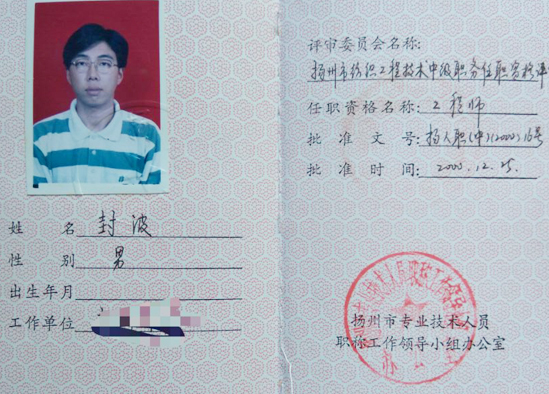 姓 名 封波
性 别 男
出生年月
工作单位
评审委员会名称:
扬州市纺织工程技术中级职务任职资格评
任职资格名称: 工程师
批 准 文 号: 扬人职(中)(2000)16号
批 准 时 间: 2000.12.25.
扬州市专业技术人员
职称工作领导小组办公室